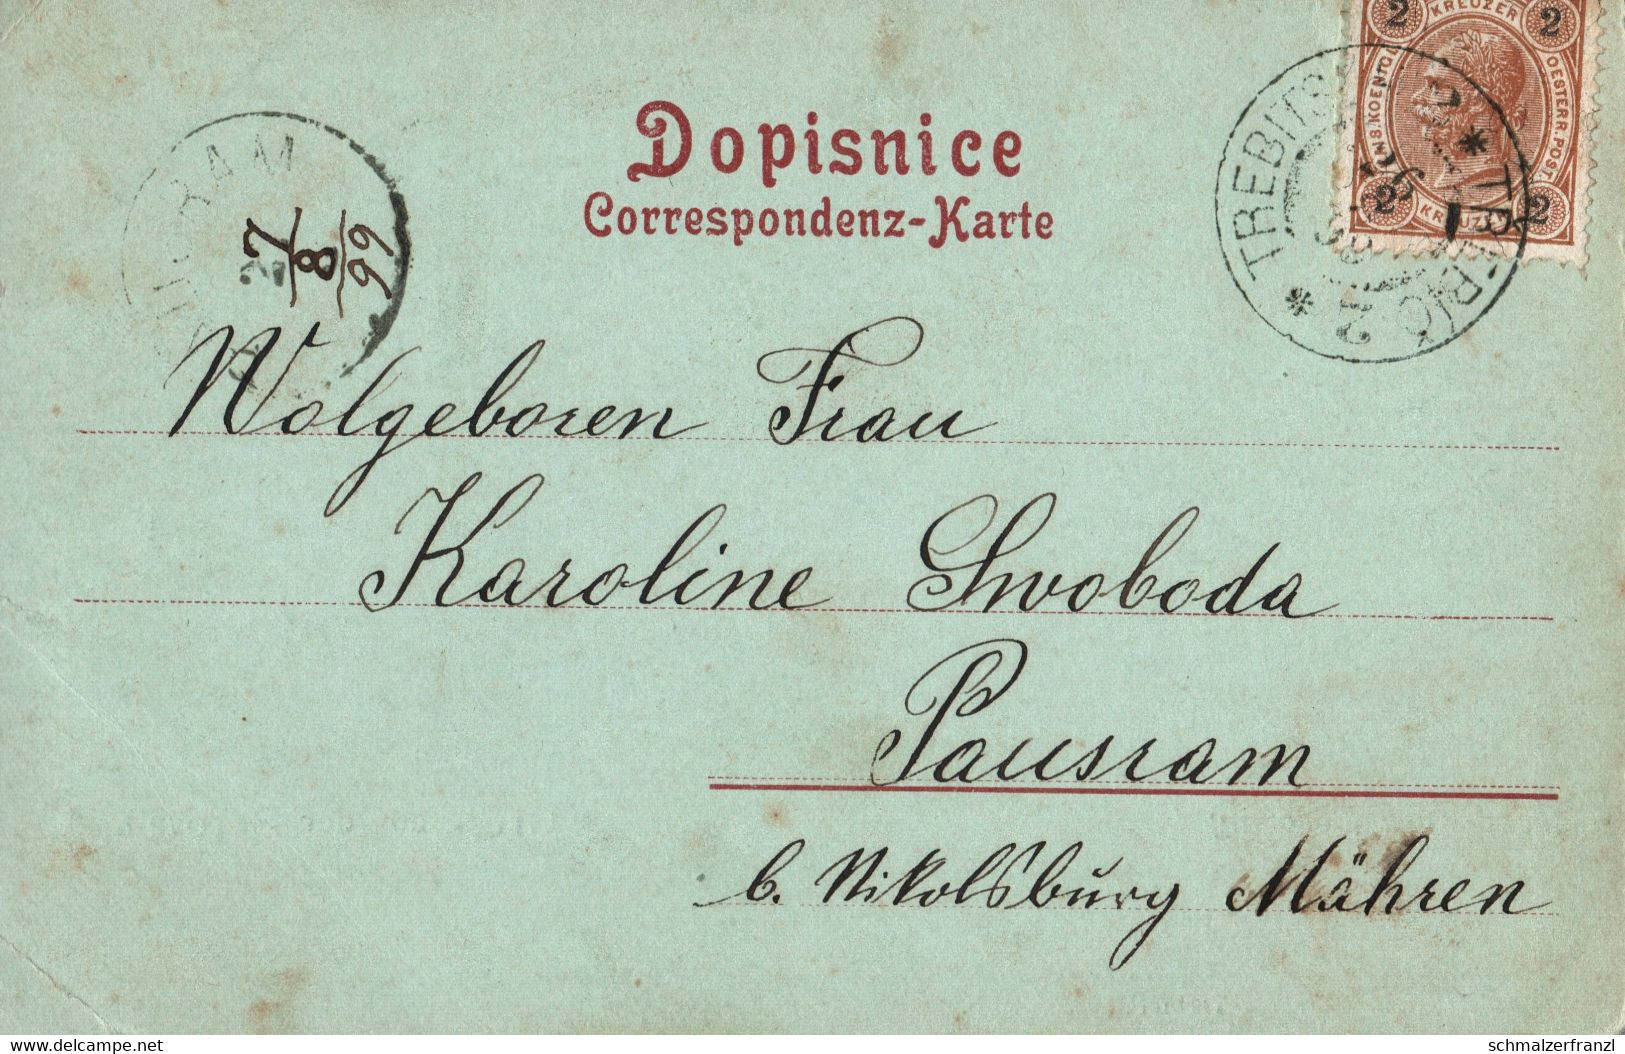 2 KREUZER 2
K.K.
OESTERR. POST.
2 KREUZER 2
Dopisnice
Correspondenz-Karte
TREBITSCH * TŘEBÍČ *
27/8/99
Wolgeboren Frau
Karoline Swoboda
Pausram
b. Nikolsburg Mähren
www.delcampe.net
schmalzerfranzl